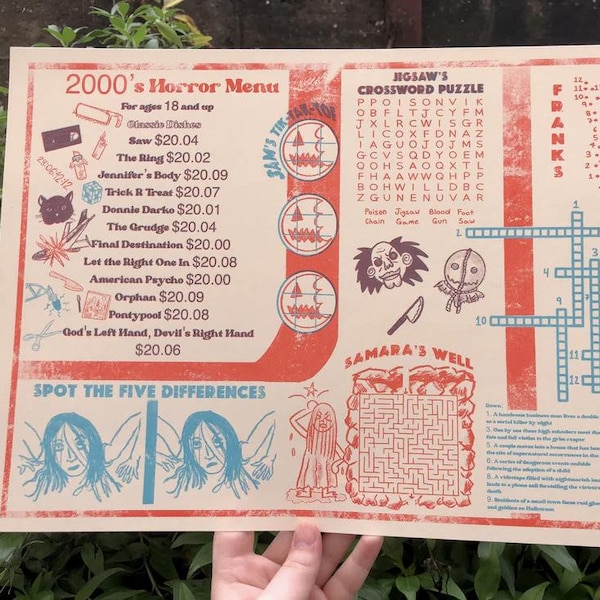 2000's Horror Menu
For ages 18 and up
Classic Dishes
Saw $20.04
The Ring $20.02
Jennifer's Body $20.09
Trick R Treat $20.07
Donnie Darko $20.01
The Grudge $20.04
Final Destination $20.00
Let the Right One In $20.08
American Psycho $20.00
Orphan $20.09
Pontypool $20.08
God's Left Hand, Devil's Right Hand
$20.06
28:06:42:12
SPOT THE FIVE DIFFERENCES
SAM'S TIK-TAK-TOE
JIGSAW'S
CROSSWORD PUZZLE
PPOISONVIK
OBFLTJCYFM
JXLRCWISGR
LICOXFDNAZ
IAGUOJOJMS
GCVSQDYOEM
OOHSAOQXTL
FHAAWWQHPP
BOHWILLDBC
ZGUNENUVAR
Poison Jigsaw Blood Foot
Chain Game Gun Saw
SAMARA'S WELL
FRANKS
12
11
10
9
8
7
1
2
4
9
10
11
12
Down:
1. A handsome business man lives a double
as a serial killer by night
fate and fall victim to the grim reaper
5. A couple moves into a house that has
the site of supernatural occurrences in the
6. A series of dangerous events unfolds
following the adoption of a child
8. A videotape filled with nightmarish
leads to a phone call foretelling the viewers
death
9. Residents of a small town face
and goblins on Halloween